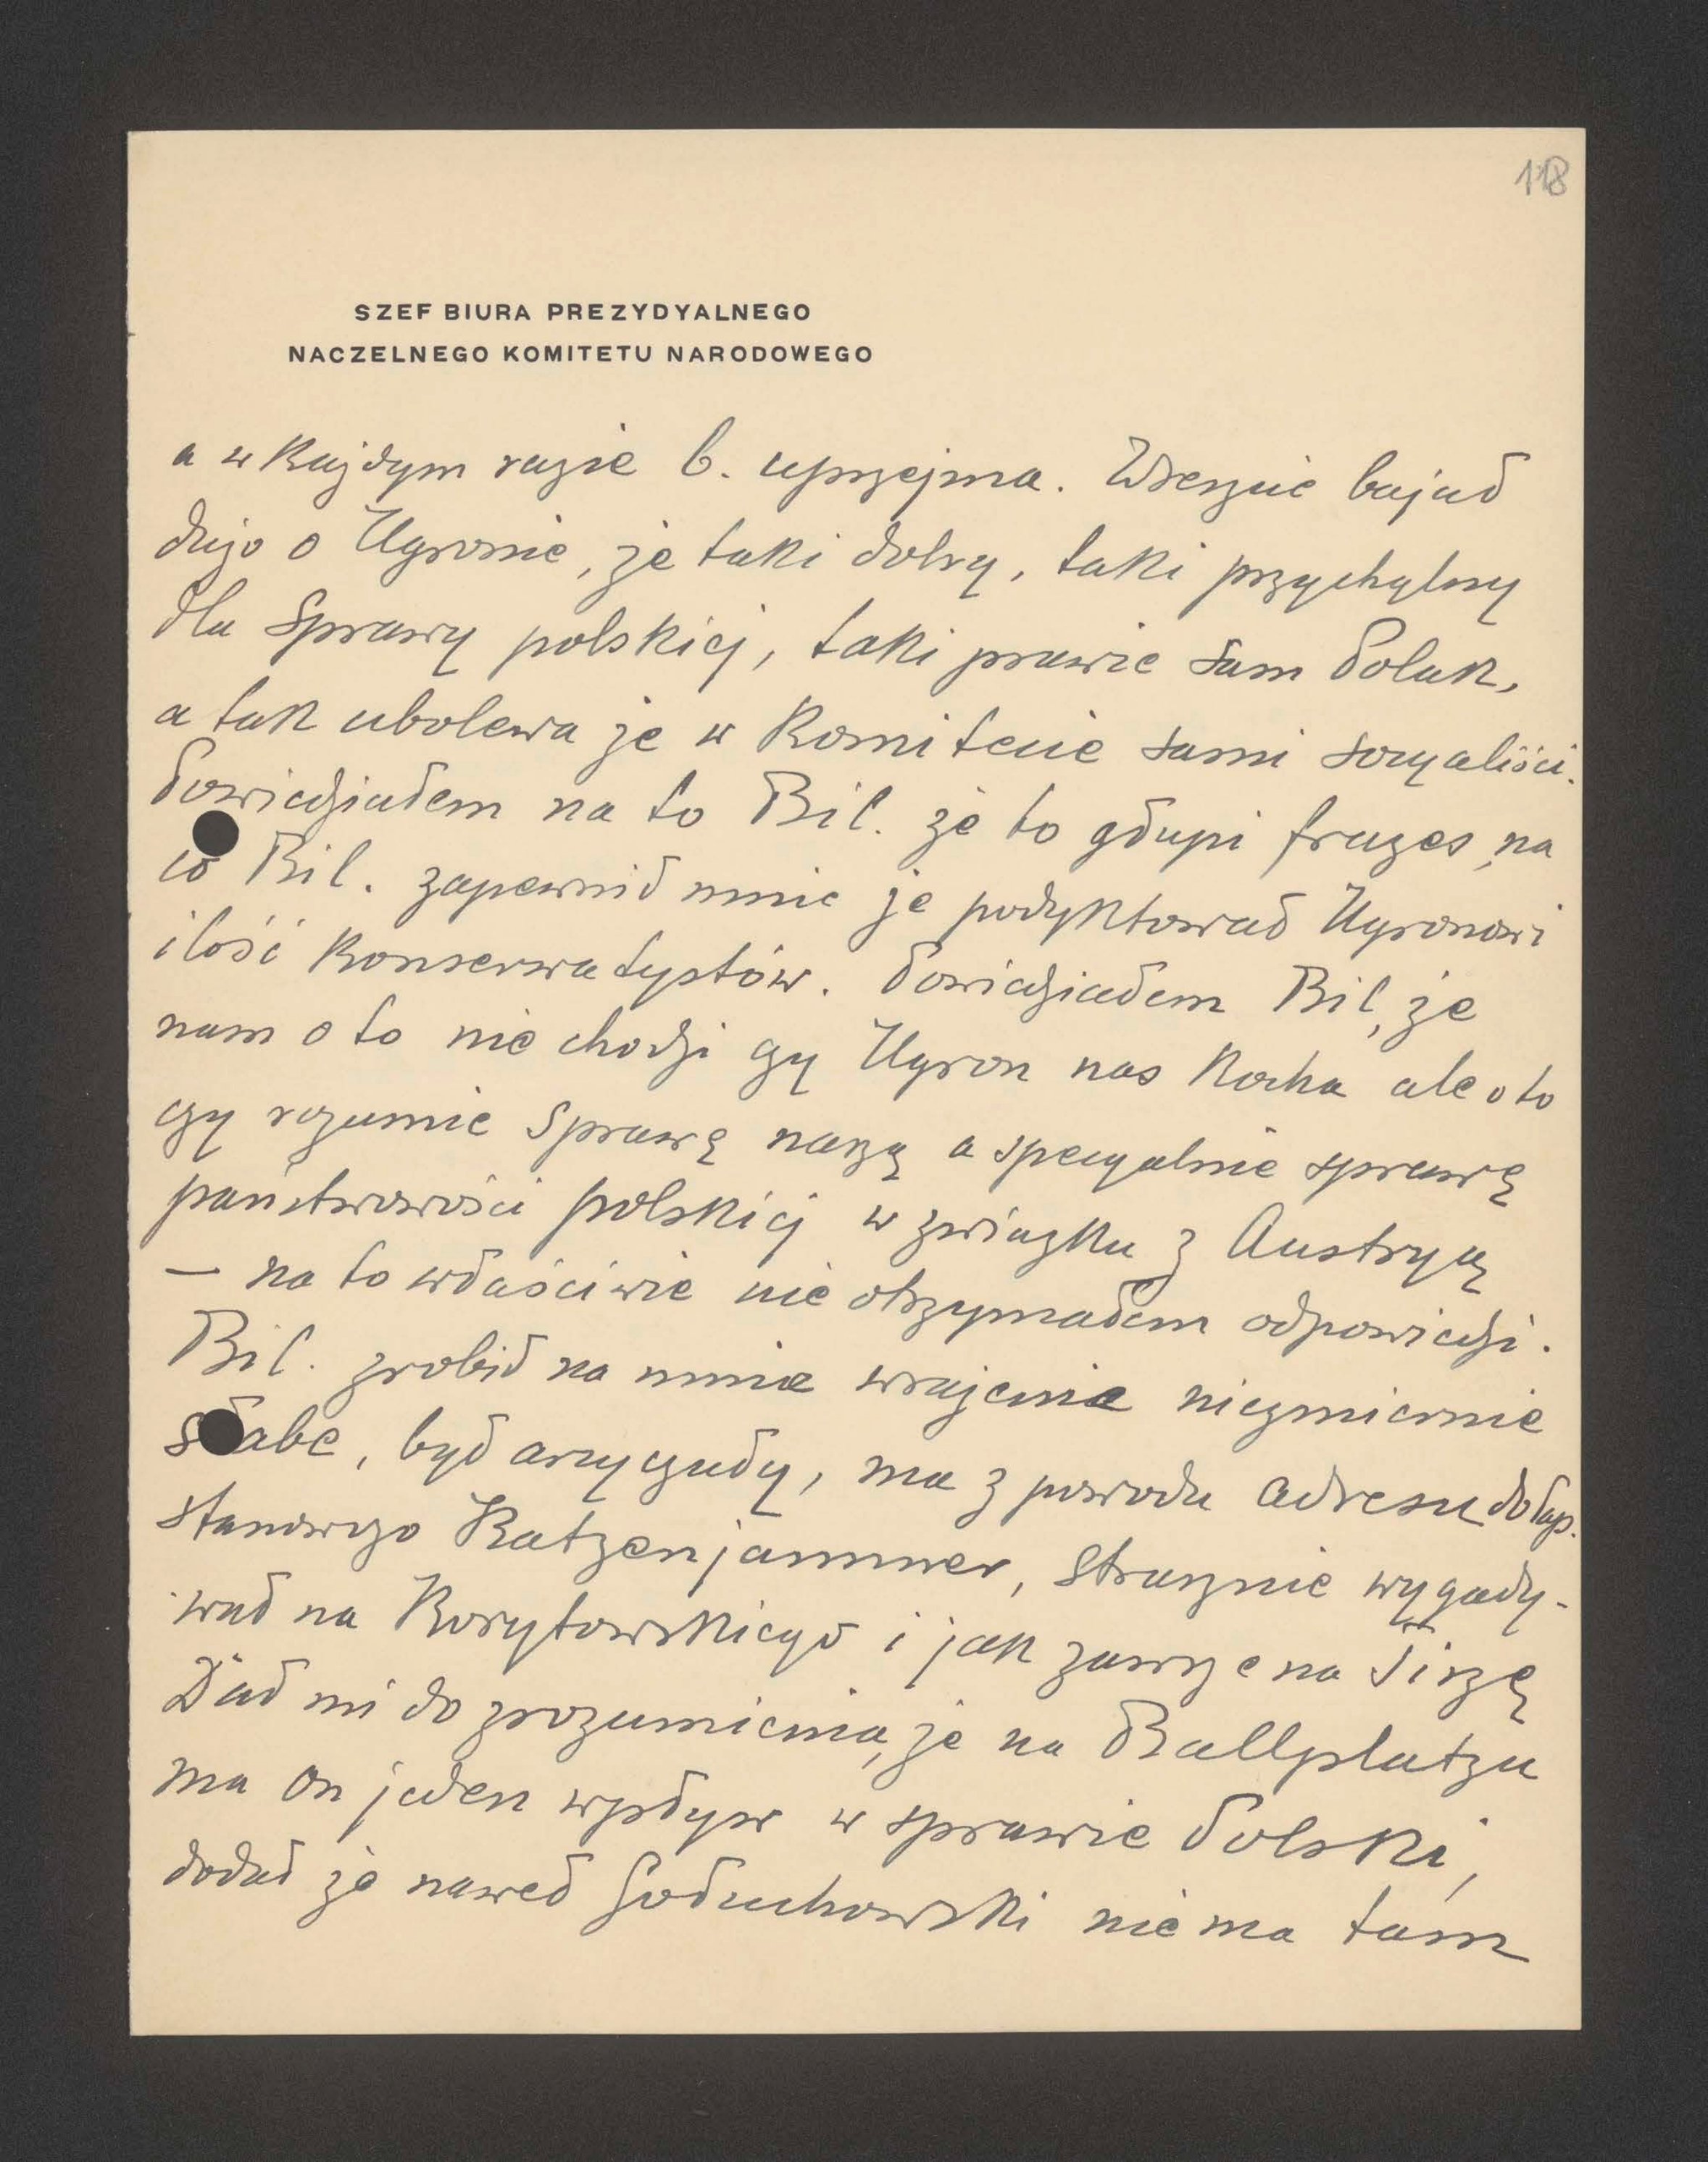 118
SZEF BIURA PREZYDYALNEGO
NACZELNEGO KOMITETU NARODOWEGO
a w każdym razie b. uprzejma. Wreszcie bajał
dużo o Ugronie, że taki dobry, taki przychylny
dla sprawy polskiej, taki prawie sam Polak,
a tak ubolewa że w Komitecie sami socyaliści.
Powiedziałem na to Bil. że to głupi frazes, na
co Bil. zapewnił mnie że podyktował Ugronowi
ilość konserwatystów. Powiedziałem Bil, że
nam o to nie chodzi czy Ugron nas kocha ale o to
czy rozumie sprawę naszą a specyalnie sprawę
państwowości polskiej w związku z Austryą
— na to właściwie nie otrzymałem odpowiedzi.
Bil. zrobił na mnie wrażenie niezmiernie
słabe, był arcygadły, ma z powodu adresu do
stanowczo Katzenjammer, strasznie wygady-
wał na Korytowskiego i jak zawsze na Tiszę
Dał mi do zrozumienia, że na Ballplatzu
ma on jeden wpływ w sprawie Polski,
dodał że nawet Gołuchowski nie ma tam